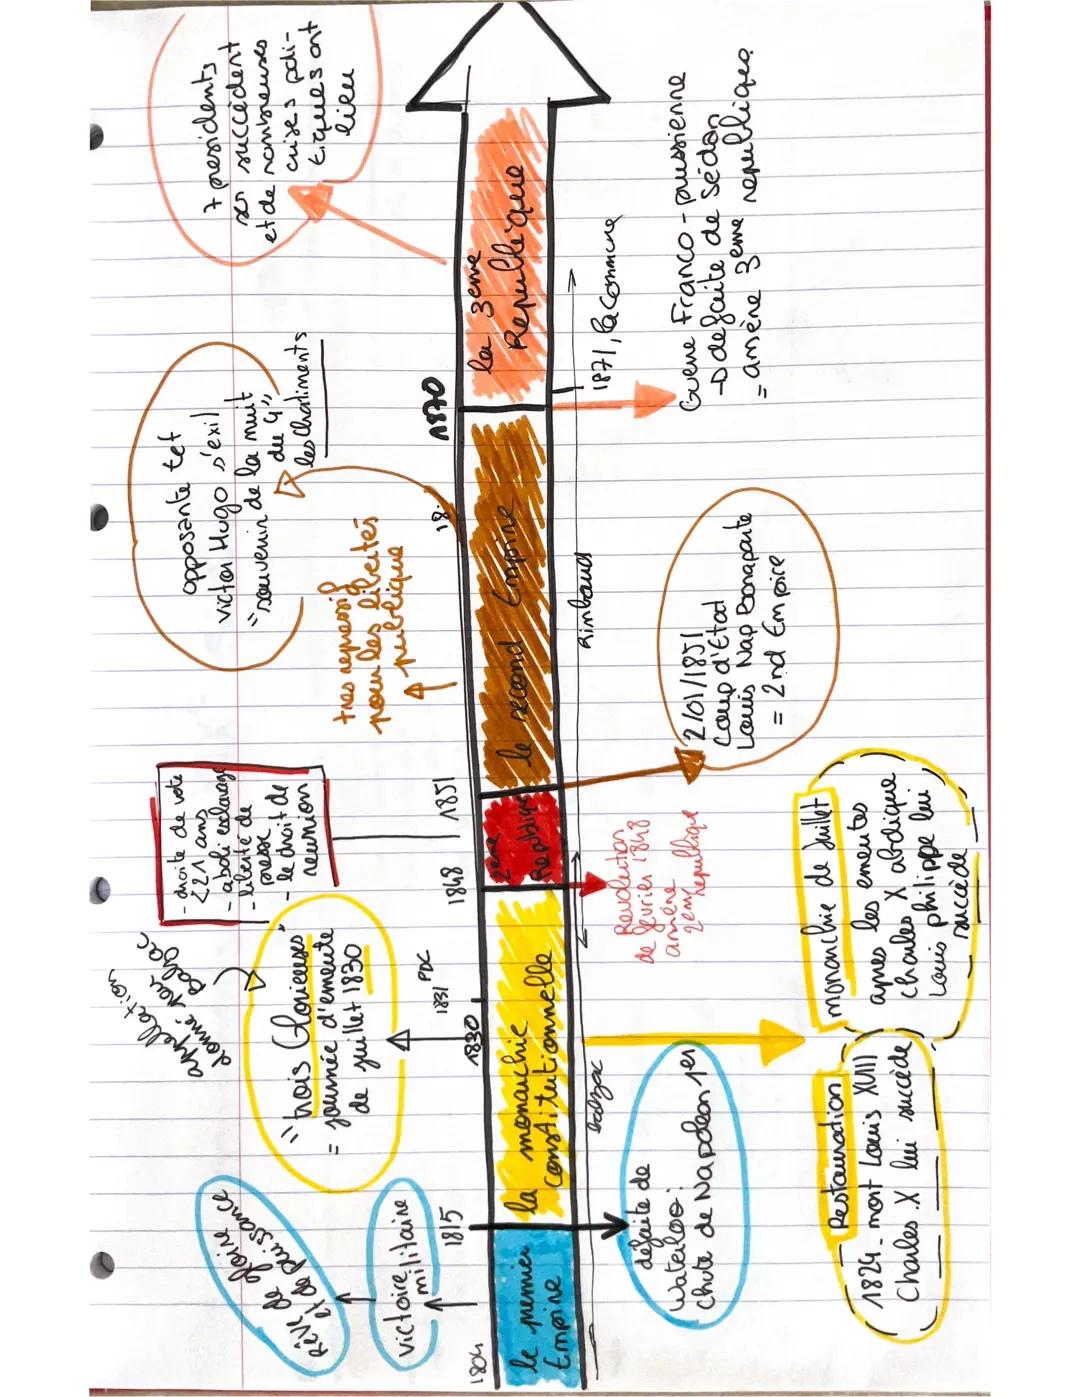 le premier
Empire
la monarchie
constitutionnelle
2eme
Republique
le second Empire
la 3eme
Republique
1804
1815
1830
1831 PDC
1848
1851
18.
1870
Balzac
Rimbaud
1871, la Commune
Rêve de gloire
et de puissance
victoire
militaire
appellation
donné par
Balzac
"trois Glorieuses"
= journée d'emeute
de juillet 1830
- droite de vote
<21 ans
- aboli esclavage
- liberté de
presse
- le droit de
reunion
tres repressif
pour les libertés
publique
opposante tet
victor Hugo s'exil
= souvenir de la nuit
du 4"
les Chatiments
7 presidents
se succèdent
et de nombreuses
crises poli-
tiques ont
lieu
défaite de
Waterloo:
chute de Napoleon 1er
Restauration
1824 - mort Louis XVII
Charles X lui succède
monarchie de Juillet
apres les emeutes
Charles X abdique
Louis philippe lui
succède
Revolution
de fevrier 1848
amène
2eme republique
2/01/1851
Coup d'Etat
Louis Nap Bonaparte
= 2nd Empire
Guerre Franco-prussienne
-D defaite de Sédan
= amène 3eme republique